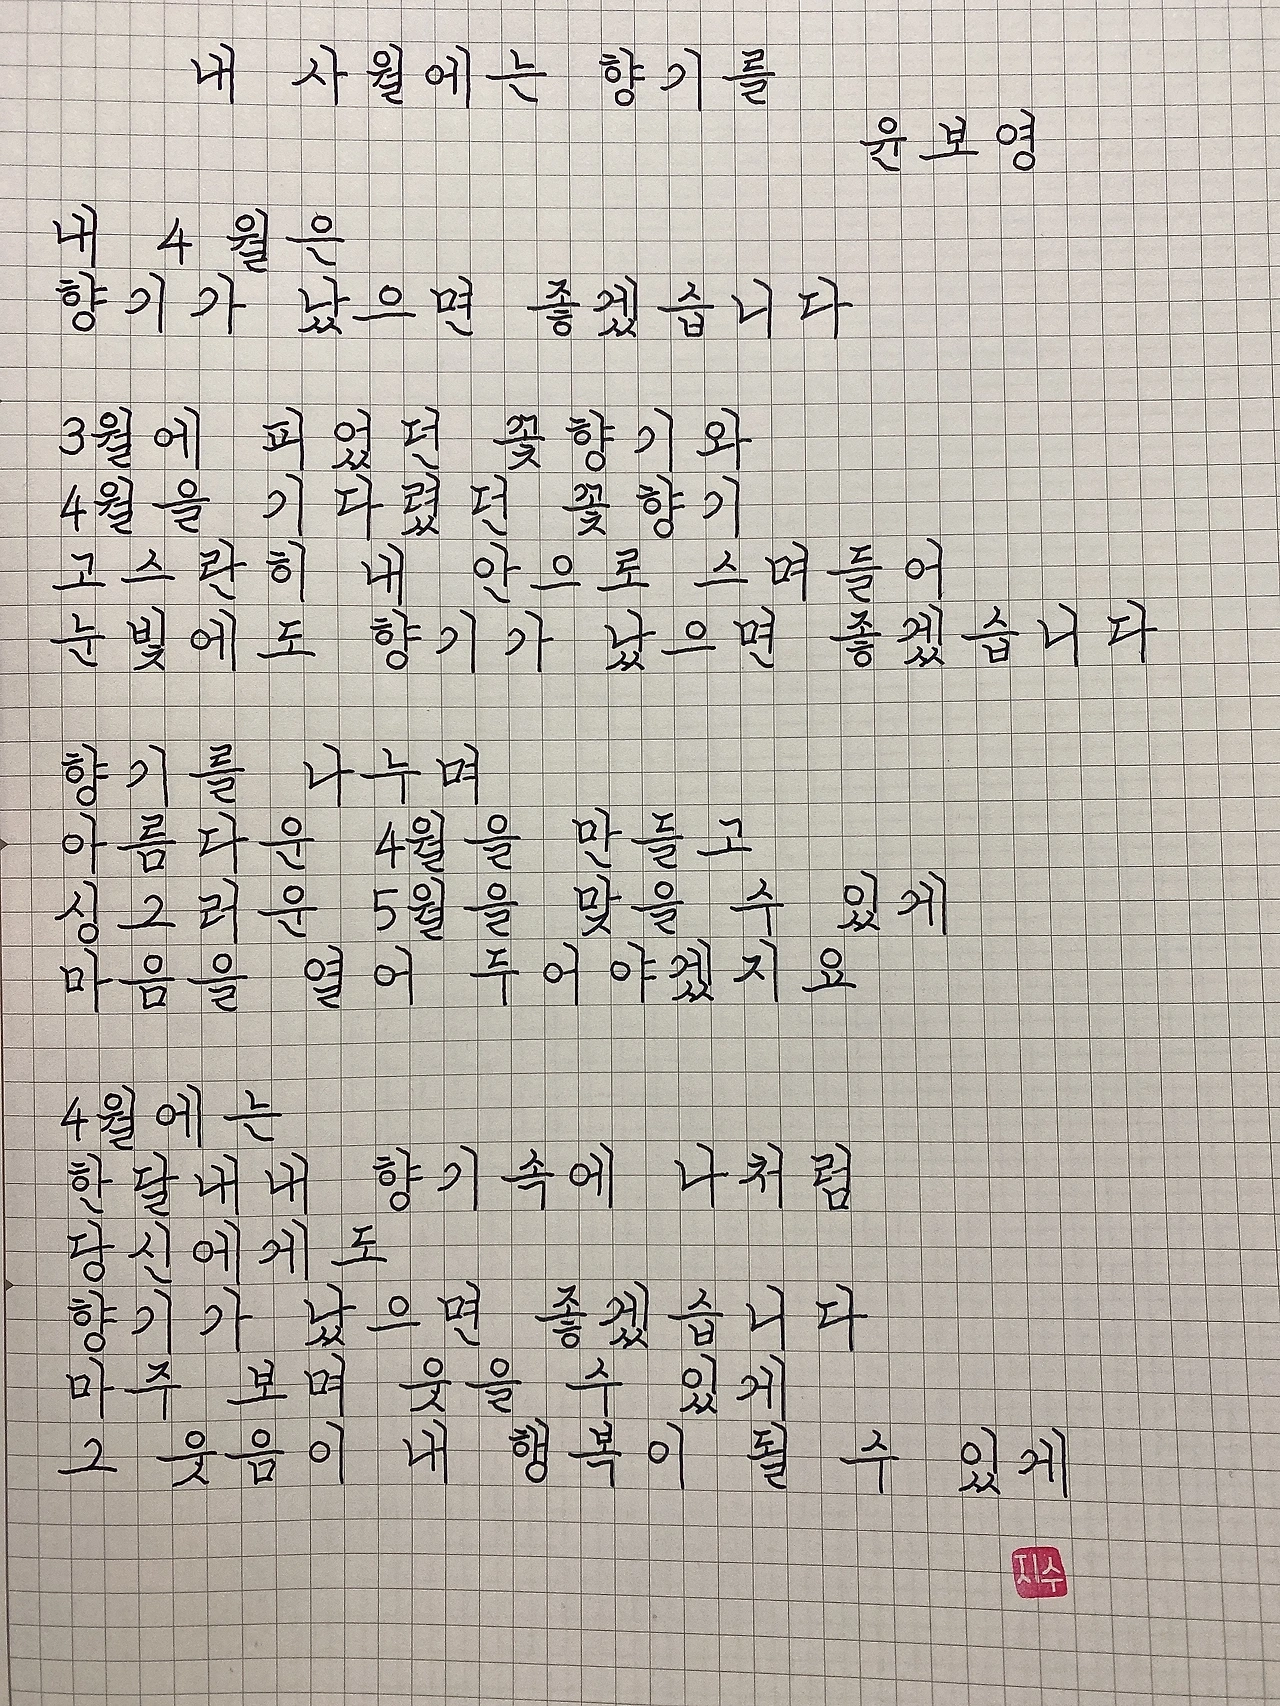 내 사월에는 향기를
윤보영
내 4월은
향기가 났으면 좋겠습니다
3월에 피었던 꽃향기와
4월을 기다렸던 꽃향기
고스란히 내 안으로 스며들어
눈빛에도 향기가 났으면 좋겠습니다
향기를 나누며
아름다운 4월을 만들고
싱그러운 5월을 맞을 수 있게
마음을 열어 두어야겠지요
4월에는
한달내내 향기속에 나처럼
당신에게도
향기가 났으면 좋겠습니다
마주 보며 웃을 수 있게
그 웃음이 내 행복이 될 수 있게
지수